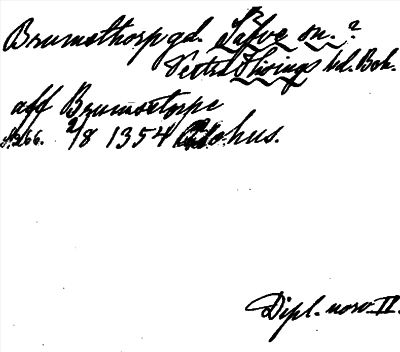 Brumsthorp gd. Säfve sn.?
Vestra Hisings hd. Boh.
aff Brumsetorpe
s. 266. 2/8 1354 Bohus.
Dipl. norv. II.